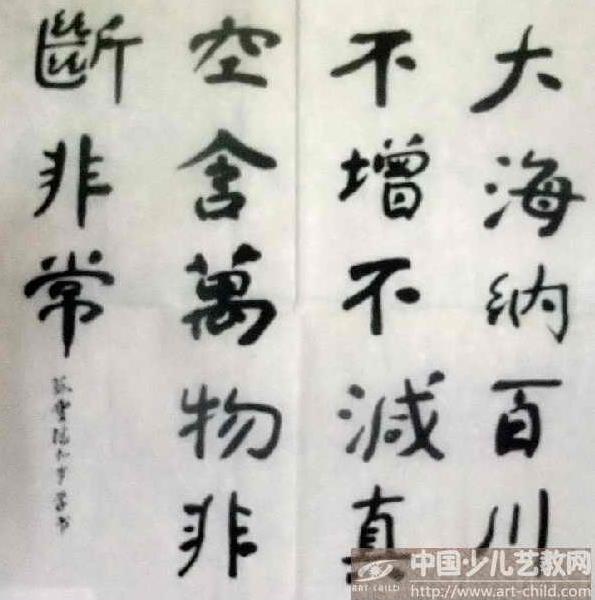 大海納百川
不增不減真
空含萬物非
斷非常
中国·少儿艺教网
ART CHILD
http://www.art-child.com